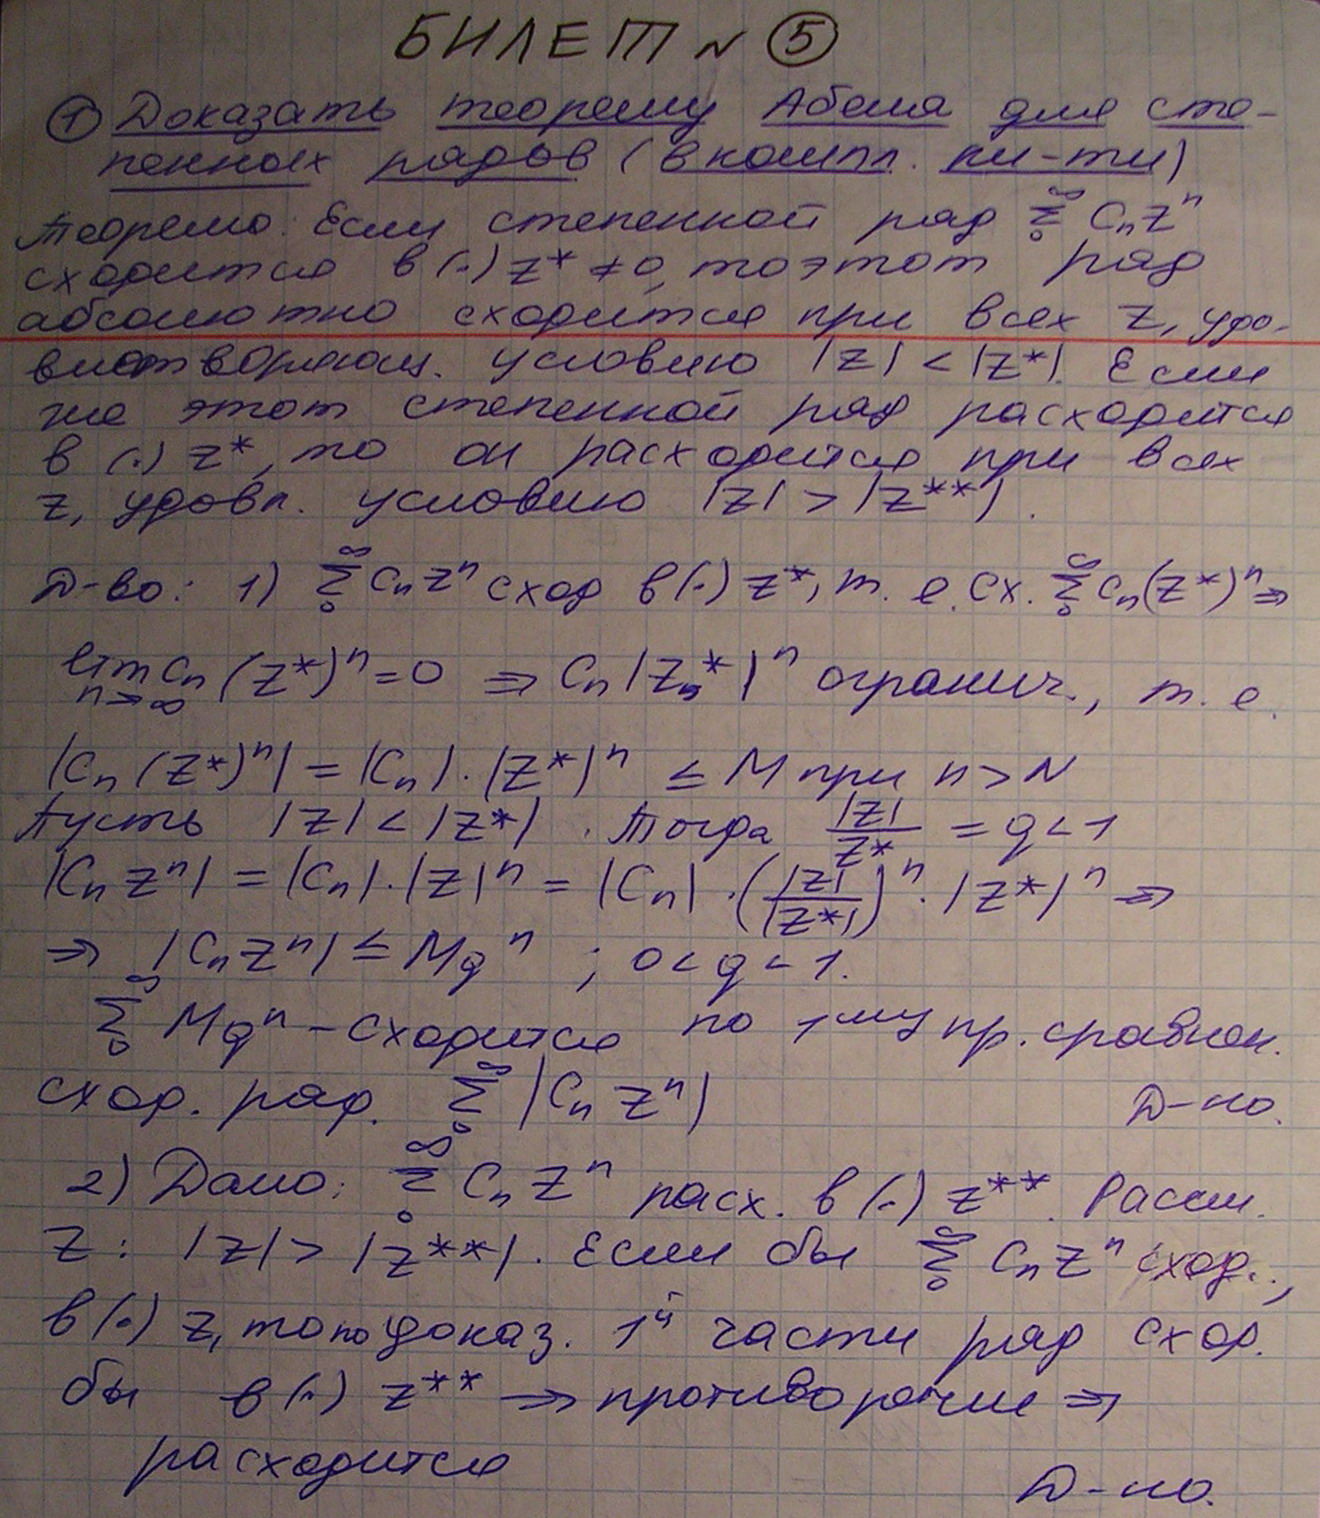 БИЛЕТ № 5
① Доказать теорему Абеля для сте-
пенных рядов (в компл. пл-ти)
Теорема: Если степенной ряд ∞ Σ 0 CₙZⁿ
сходится в (·) Z* ≠ 0, то этот ряд
абсолютно сходится при всех Z, удо-
влетворяющ. условию |Z| < |Z*|. Если
же этот степенной ряд расходится
в (·) Z*, то он расходится при всех
Z, удовл. условию |Z| > |Z**|.
Д-во: 1) ∞ Σ 0 CₙZⁿ сход в (·) Z*, т. е. сх. ∞ Σ 0 Cₙ(Z*)ⁿ ⇒
lim n→∞ Cₙ (Z*)ⁿ = 0 ⇒ Cₙ |Zₙ*|ⁿ огранич., т. е.
|Cₙ (Z*)ⁿ| = |Cₙ| · |Z*|ⁿ ≤ M при n > N
Пусть |Z| < |Z*|. Тогда |Z| / Z* = q < 1
|Cₙ Zⁿ| = |Cₙ| · |Z|ⁿ = |Cₙ| · (|Z| / |Z*|)ⁿ · |Z*|ⁿ ⇒
⇒ |Cₙ Zⁿ| ≤ Mqⁿ ; 0 < q < 1.
∞ Σ 0 Mqⁿ – сходится по 1му пр. сравнен.
сход. ряд. ∞ Σ 0 |Cₙ Zⁿ| Д-но.
2) Дано: ∞ Σ 0 Cₙ Zⁿ расх. в (·) Z**. Рассм.
Z : |Z| > |Z**|. Если бы ∞ Σ 0 CₙZⁿ сход.,
в (·) Z, то по доказ. 1й части ряд сход.
бы в (·) Z** ⇒ противоречие ⇒
расходится Д-но.